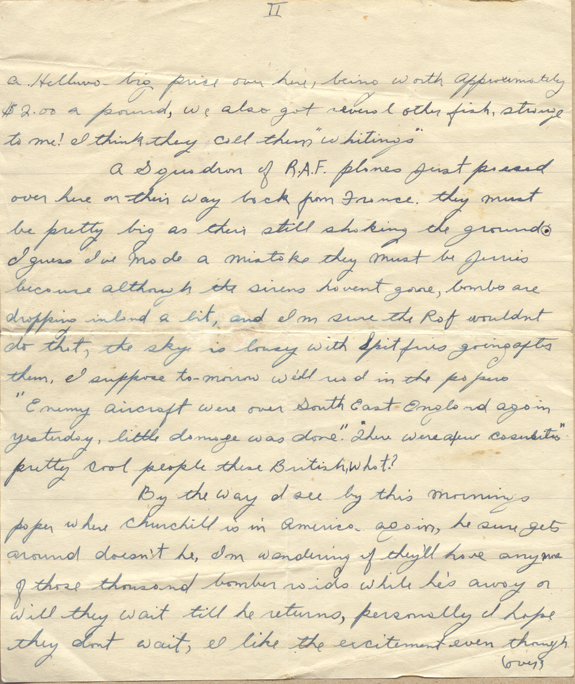 II
a Helluva big price over here, being worth approximately
$2.00 a pound, we also got several other fish, strange
to me! I think they call them "whitings"
A Squadron of R.A.F. planes just passed
over here on their way back from France. they must
be pretty big as their still shaking the ground.
I guess I've made a mistake they must be jerries
because although the sirens havent gone, bombs are
dropping inland a bit, and I'm sure the Raf wouldnt
do that, the sky is lousy with Spitfires going after
them, I suppose to-morrow we'll read in the papers
"Enemy aircraft were over South East England again
yesterday, little damage was done". "There were a few casualties"
pretty cool people these British, what?
By the way I see by this mornings
paper where Churchill is in America again, he sure gets
around doesn't he, I'm wondering if they'll have anymore
of those thousand bomber raids while he's away or
will they wait till he returns, personally I hope
they dont wait, I like the excitement even though
(over)